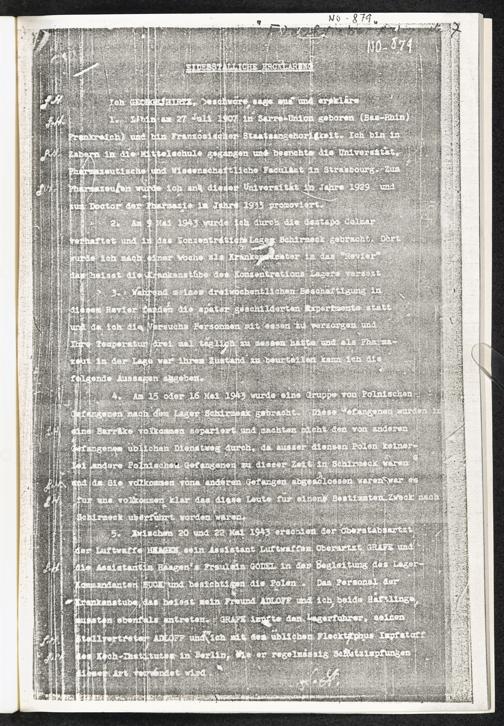 NO-879
NO-879
EIDESSTALLICHE ERKLARUNG
Ich GEORGE HIRTZ, beschwore sage aus und erklare
1. Ich bin am 27 Juli 1907 in Sarre-Union geboren (Bas-Rhin)
Frankreich) und bin Französischer Staatsangehorigkeit. Ich bin in
Zabern in die Mittelschule gegangen und besuchte die Universität,
Pharmazeutische und Wissenschaftliche Facultät in Strasbourg. Zum
Pharmazeuten wurde ich an dieser Universität im Jahre 1929 und
zum Doctor der Pharmazie im Jahre 1933 promoviert.
2. Am 9 Mai 1943 wurde ich durch die Gestapo Colmar
verhaftet und in das Konzentrations Lager Schirmeck gebracht. Dort
wurde ich nach einer Woche als Krankenwärter in das "Revier"
das heisst die Krankenstube des Konzentrations Lagers versezt
3. Während meiner dreiwochentlichen Beschaftigung in
diesem Revier fanden die später geschilderten Experimente statt
und da ich die Versuchs Personnen mit essen zu versorgen und
Ihre Temperatur drei mal täglich zu messen hatte und als Pharma-
zeut in der Lage war ihren Zustand zu beurteilen kann ich die
folgende Aussagen abgeben.
4. Am 15 oder 16 Mai 1943 wurde eine Gruppe von Polnischen
Gefangenen nach dem Lager Schirmeck gebracht. Diese Gefangenen wurden in
eine Barräke volkommen separiert und machten nicht den von anderen
Gefangenen ublichen Dienstweg durch, da ausser diensen Polen keiner-
lei andere Polnischen Gefangenen zu dieser Zeit in Schirmeck waren
und da Sie volkommen von anderen Gefangen abgeschlossen waren war es
fur uns volkommen klar das diese Leute fur einen Bestimmten Zweck nach
Schirmeck uberfuhrt worden waren.
5. Zwischen 20 und 22 Mai 1943 erschien der Oberstabsartzt
der Luftwaffe HAAGEN, sein Assistant Luftwaffen Oberartzt GRÄFE und
die Assistantin Haagen's Fräulein GODEL in der Begleitung des Lager-
Kommandanten BUCK und besichtigen die Polen. Das Personal der
Krankenstube, das heisst mein Freund ADLOFF und ich, beide Haftlinge,
mussten ebenfals antreten. GRAFE impfte den Lagerfuhrer, seinen
Stellvertreter ADLOFF und ich mit dem ublichen Flecktyphus Impfstoff
des Koch-Institutes in Berlin, wie er regelmässig Schutzimpfungen
dieser Art verwendet wird.